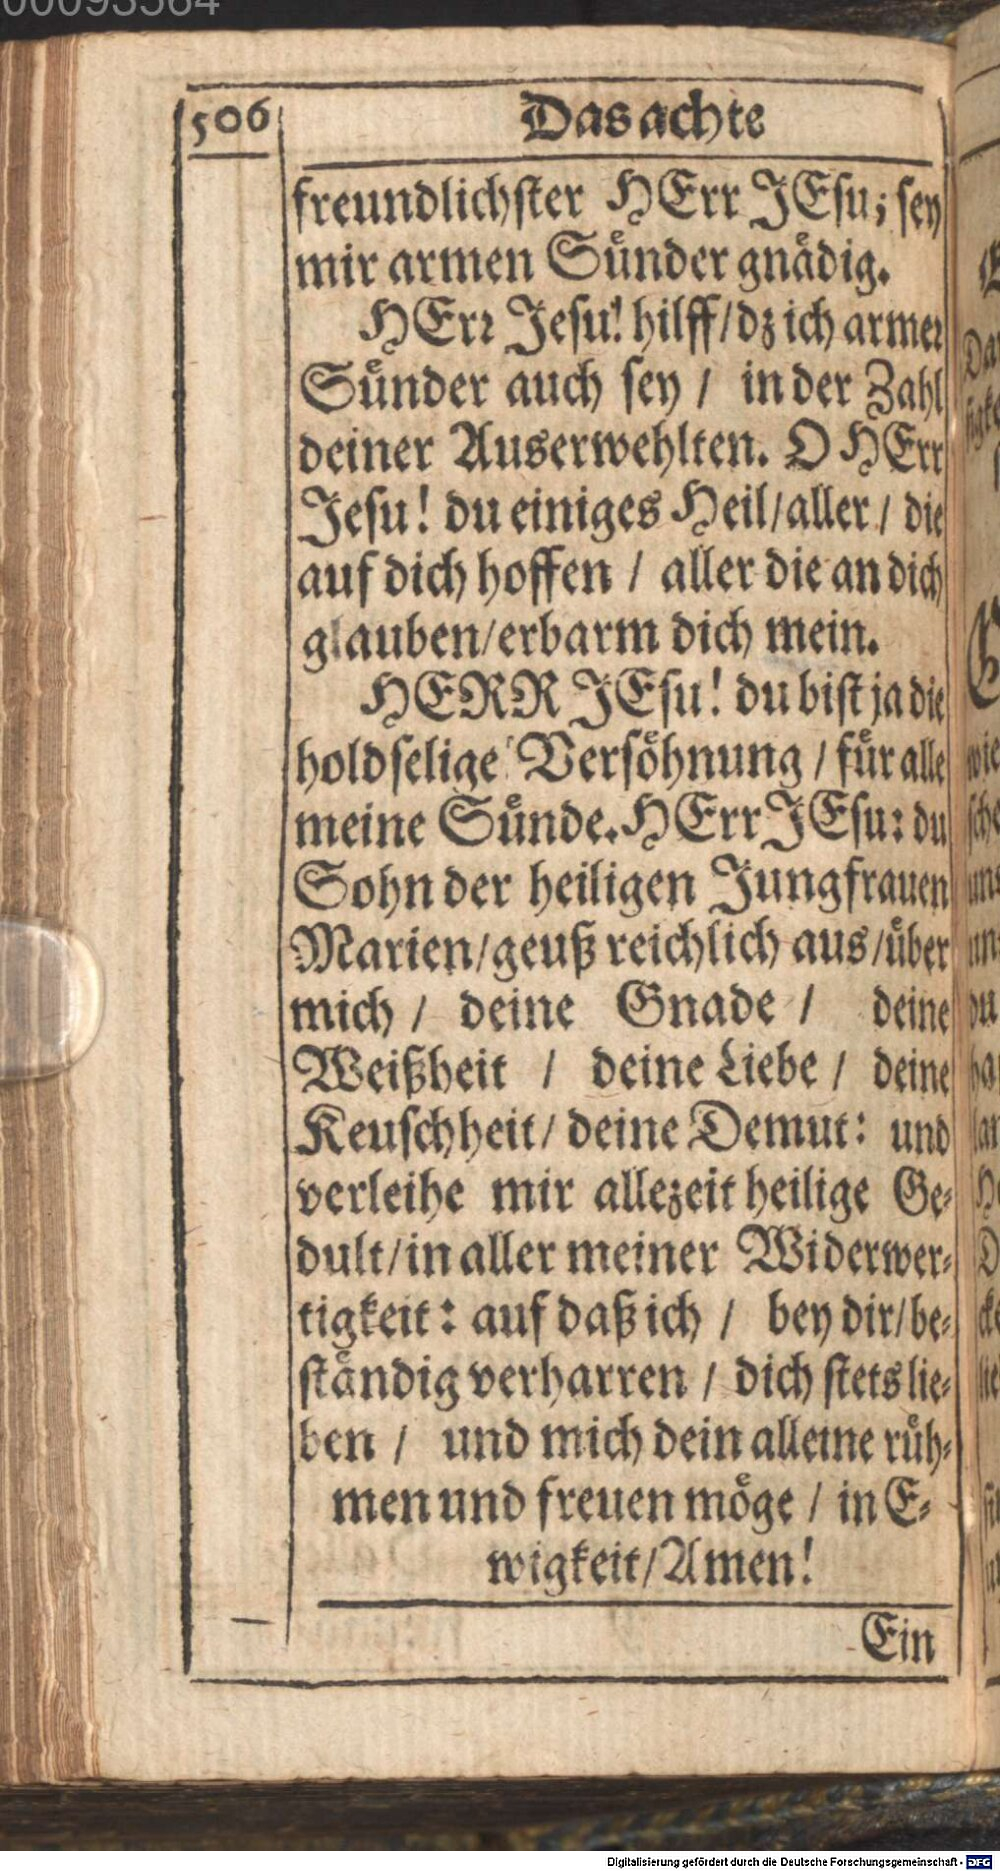 00093564
506
Das achte
freundlichster HErr JEsu; sey
mir armen Sünder gnädig.
HErr Jesu! hilff/dz ich armer
Sünder auch sey / in der Zahl
deiner Auserwehlten. O HErr
Jesu! du einiges Heil/aller / die
auf dich hoffen / aller die an dich
glauben/erbarm dich mein.
HERR JEsu! du bist ja die
holdselige Versöhnung / für alle
meine Sünde. HErr JEsu: du
Sohn der heiligen Jungfrauen
Marien/geuß reichlich aus/über
mich / deine Gnade / deine
Weißheit / deine Liebe / deine
Keuschheit/ deine Demut: und
verleihe mir allezeit heilige Ge-
dult/in aller meiner Widerwer-
tigkeit: auf daß ich / bey dir/be-
ständig verharren / dich stets lie-
ben / und mich dein alleine rüh-
men und freuen möge / in E-
wigkeit/Amen!
Ein
Digitalisierung gefördert durch die Deutsche Forschungsgemeinschaft - DFG